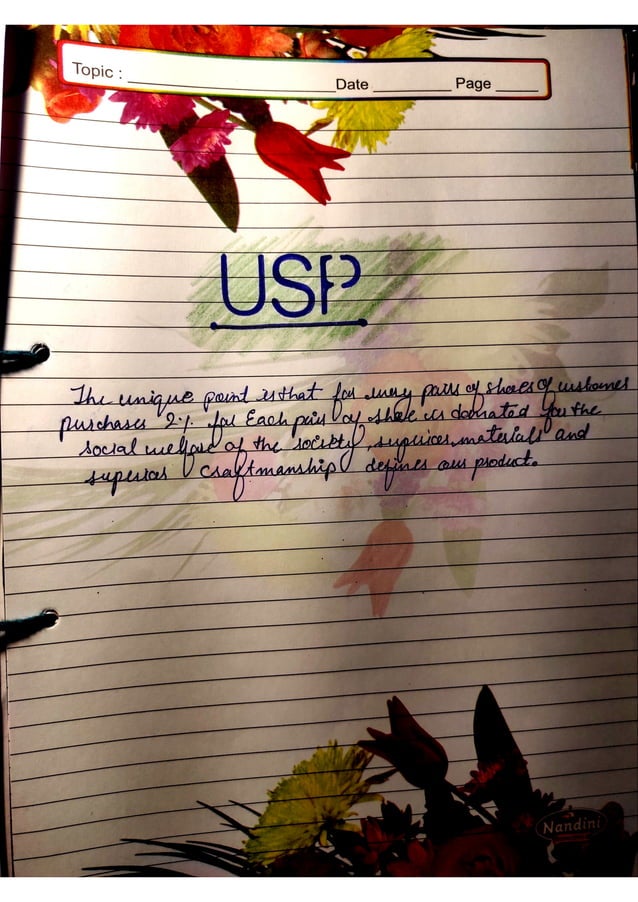 Topic : ____________ Date ________ Page _____
USP
The unique point is that for every pairs of shoes of customes
purchases 2% for Each pair of shoe is donated for the
social welfare of the society, superior materials and
superior craftmanship defines our product.
Nandini